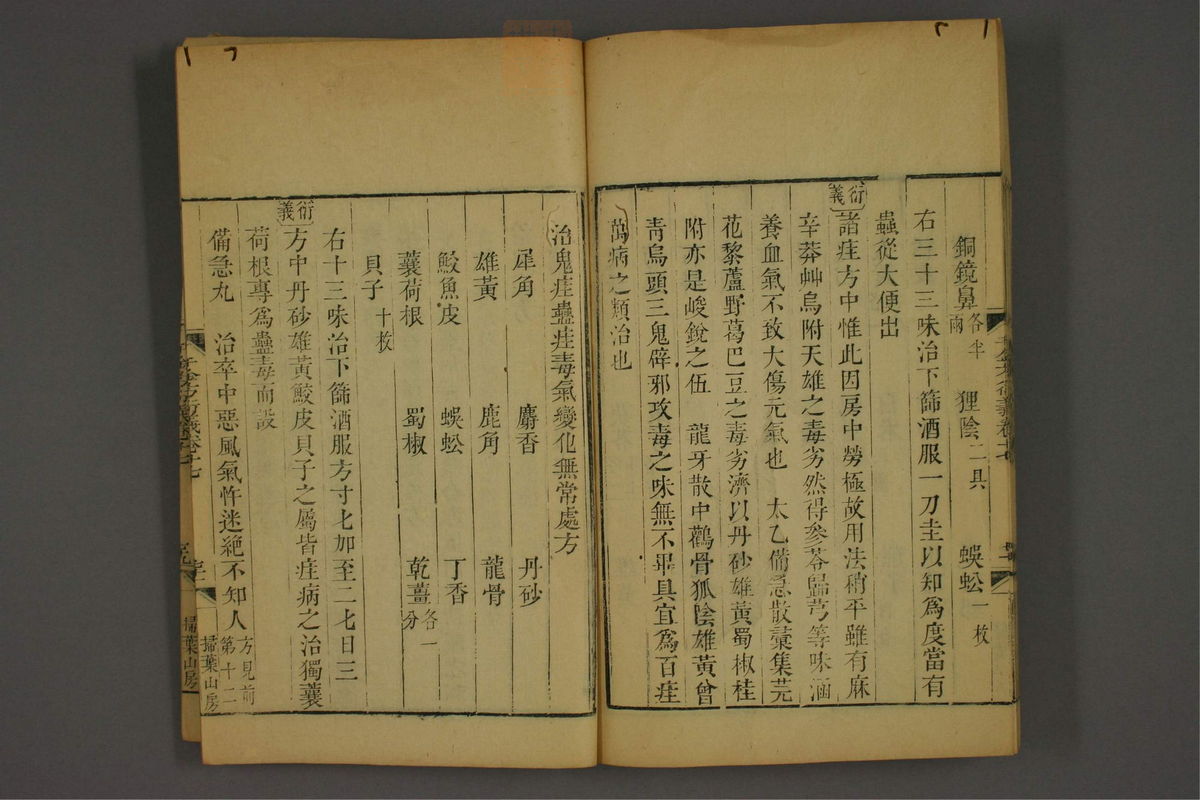 銅鏡鼻各半兩　狸陰二具　蜈蚣一枚
右三十三味治下篩酒服一刀圭以知爲度當有
蟲從大便出
衍義
諸疰方中惟此因房中勞極故用法稍平雖有麻
辛莽艸烏附天雄之毒劣然得參苓歸芎等味涵
養血氣不致大傷元氣也　太乙備急散彙集芫
花藜蘆野葛巴豆之毒劣濟以丹砂雄黃蜀椒桂
附亦是峻銳之伍　龍牙散中鸛骨狐陰雄黃曾
青烏頭三鬼辟邪攻毒之味無不畢具宜爲百疰
萬病之類治也
治鬼疰蠱疰毒氣變化無常處方
犀角　麝香　丹砂
雄黃　鹿角　龍骨
鮫魚皮　蜈蚣　丁香
蘘荷根　蜀椒　乾薑各一分
貝子十枚
右十三味治下篩酒服方寸匕加至二匕日三
衍義
方中丹砂雄黃鮫皮貝子之屬皆疰病之治獨蘘
荷根專爲蠱毒而設
備急丸　治卒中惡風氣忤迷絶不知人方見前第十二
掃葉山房
掃葉山房